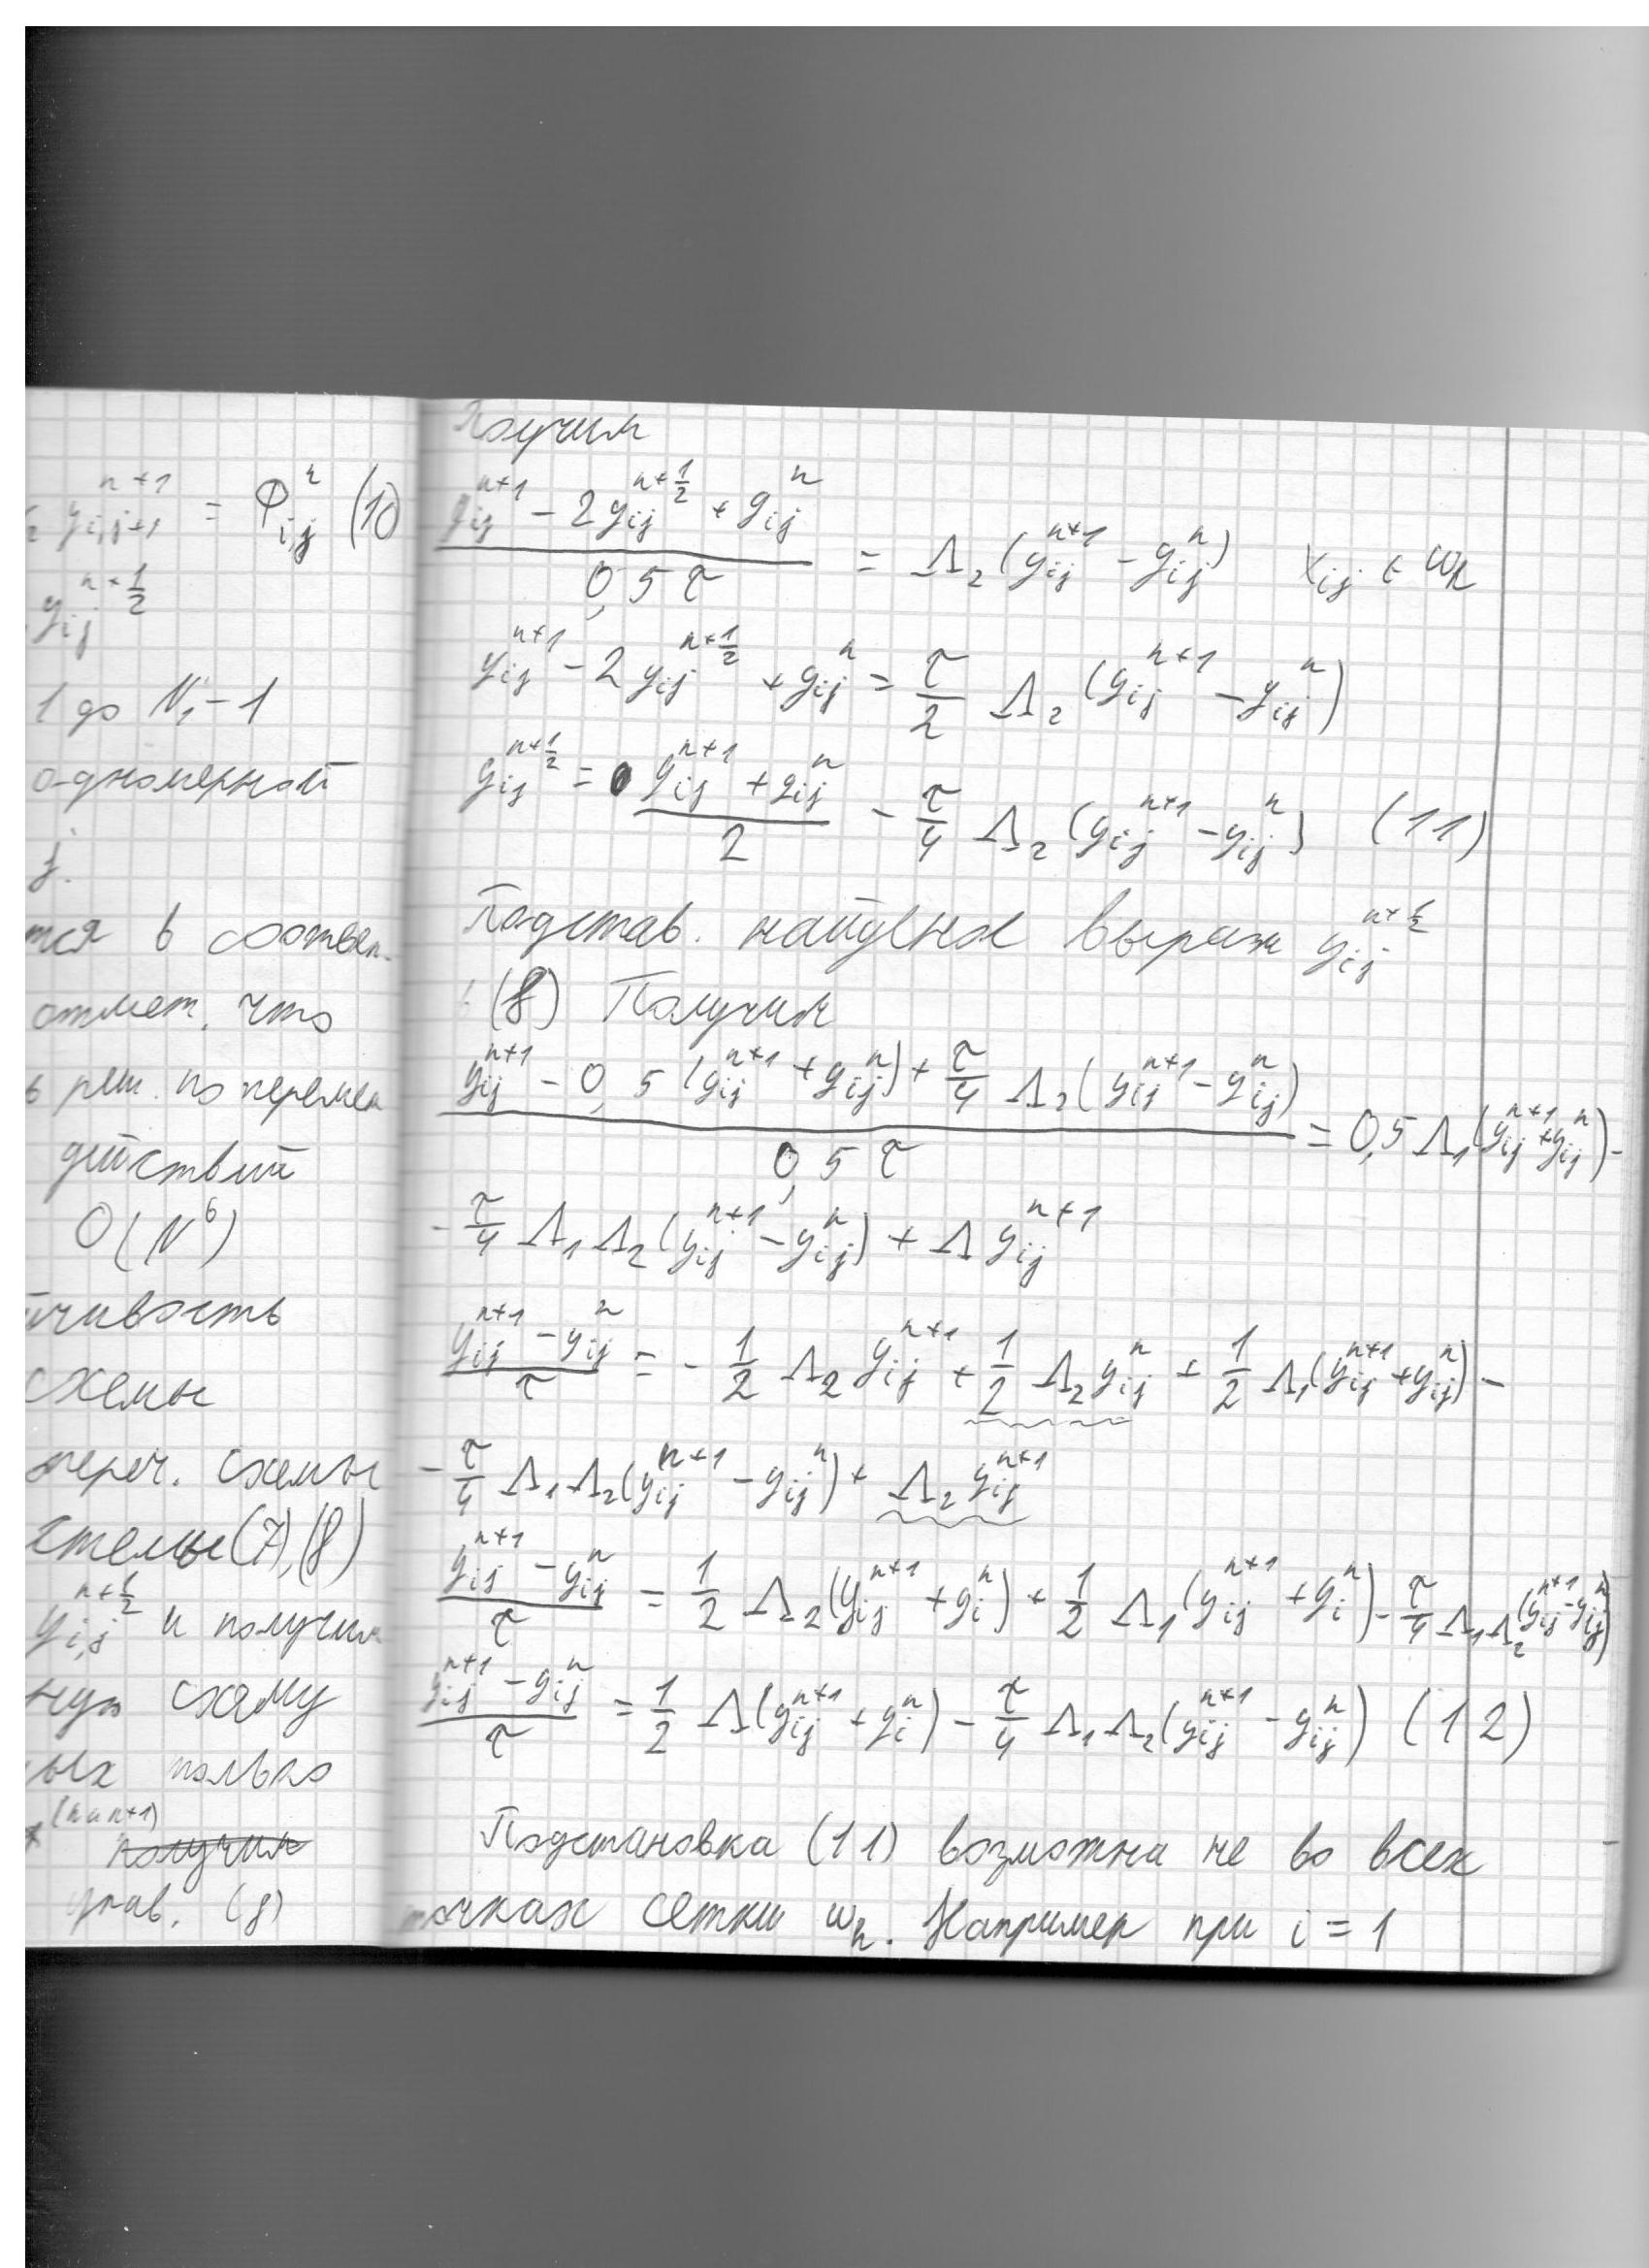 y_{i,j+1}^{n+1} = Φ_{i,j}^n (10)
y_{ij}^{n+1/2}
1 до N_1 - 1
одномерной
j.
тся в соответ.
отмет. что
реш. по перемен
действий
O(N^6)
чивость
схемы
переч. схемы
стемы (7), (8)
y_{i,j}^{n+1/2} и получим
ную схему
ых только
(n и n+1)
получим
урав. (8)
Получим
(y_{ij}^{n+1} - 2y_{ij}^{n+1/2} + y_{ij}^n) / 0,5τ = Λ_2 (y_{ij}^{n+1} - y_{ij}^n) x_{ij} ∈ ω_h
y_{ij}^{n+1} - 2y_{ij}^{n+1/2} + y_{ij}^n = τ/2 Λ_2 (y_{ij}^{n+1} - y_{ij}^n)
y_{ij}^{n+1/2} = (y_{ij}^{n+1} + y_{ij}^n) / 2 - τ/4 Λ_2 (y_{ij}^{n+1} - y_{ij}^n) (11)
Подстав. найденное выраж y_{ij}^{n+1/2}
в (8) Получим
(y_{ij}^{n+1} - 0,5 (y_{ij}^{n+1} + y_{ij}^n) + τ/4 Λ_2 (y_{ij}^{n+1} - y_{ij}^n)) / 0,5τ = 0,5 Λ_1 (y_{ij}^{n+1} + y_{ij}^n) -
- τ/4 Λ_1 Λ_2 (y_{ij}^{n+1} - y_{ij}^n) + Λ y_{ij}^{n+1}
(y_{ij}^{n+1} - y_{ij}^n) / τ = - 1/2 Λ_2 y_{ij}^{n+1} + 1/2 Λ_2 y_{ij}^n + 1/2 Λ_1 (y_{ij}^{n+1} + y_{ij}^n) -
- τ/4 Λ_1 Λ_2 (y_{ij}^{n+1} - y_{ij}^n) + Λ_2 y_{ij}^{n+1}
(y_{ij}^{n+1} - y_{ij}^n) / τ = 1/2 Λ_2 (y_{ij}^{n+1} + y_i^n) + 1/2 Λ_1 (y_{ij}^{n+1} + y_i^n) - τ/4 Λ_1 Λ_2 (y_{ij}^{n+1} - y_{ij}^n)
(y_{ij}^{n+1} - y_{ij}^n) / τ = 1/2 Λ (y_{ij}^{n+1} + y_i^n) - τ/4 Λ_1 Λ_2 (y_{ij}^{n+1} - y_{ij}^n) (12)
Подстановка (11) возможна не во всех
точках сетки ω_h. Например при i = 1